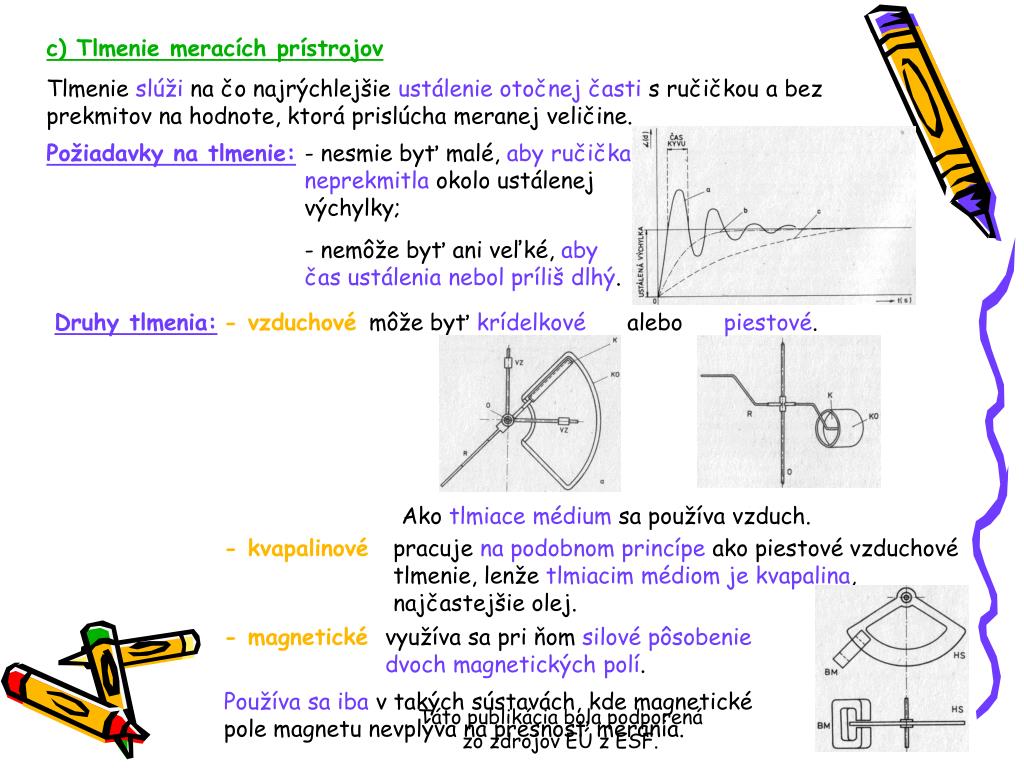 c) Tlmenie meracích prístrojov
Tlmenie slúži na čo najrýchlejšie ustálenie otočnej časti s ručičkou a bez
prekmitov na hodnote, ktorá prislúcha meranej veličine.
Požiadavky na tlmenie: - nesmie byť malé, aby ručička
neprekmitla okolo ustálenej
výchylky;
- nemôže byť ani veľké, aby
čas ustálenia nebol príliš dlhý.
∠(d)
ČAS
KYVU
a
b
c
USTÁLENÁ VÝCHYLKA
0
t(s)
Druhy tlmenia: - vzduchové môže byť krídelkové alebo piestové.
K
VZ
KO
O
VZ
R
a
K
R
KO
O
Ako tlmiace médium sa používa vzduch.
- kvapalinové pracuje na podobnom princípe ako piestové vzduchové
tlmenie, lenže tlmiacim médiom je kvapalina,
najčastejšie olej.
- magnetické využíva sa pri ňom silové pôsobenie
dvoch magnetických polí.
BM
HS
BM
HS
Používa sa iba v takých sústavách, kde magnetické
pole magnetu nevplýva na presnosť merania.
Táto publikácia bola podporená
zo zdrojov EÚ z ESF.